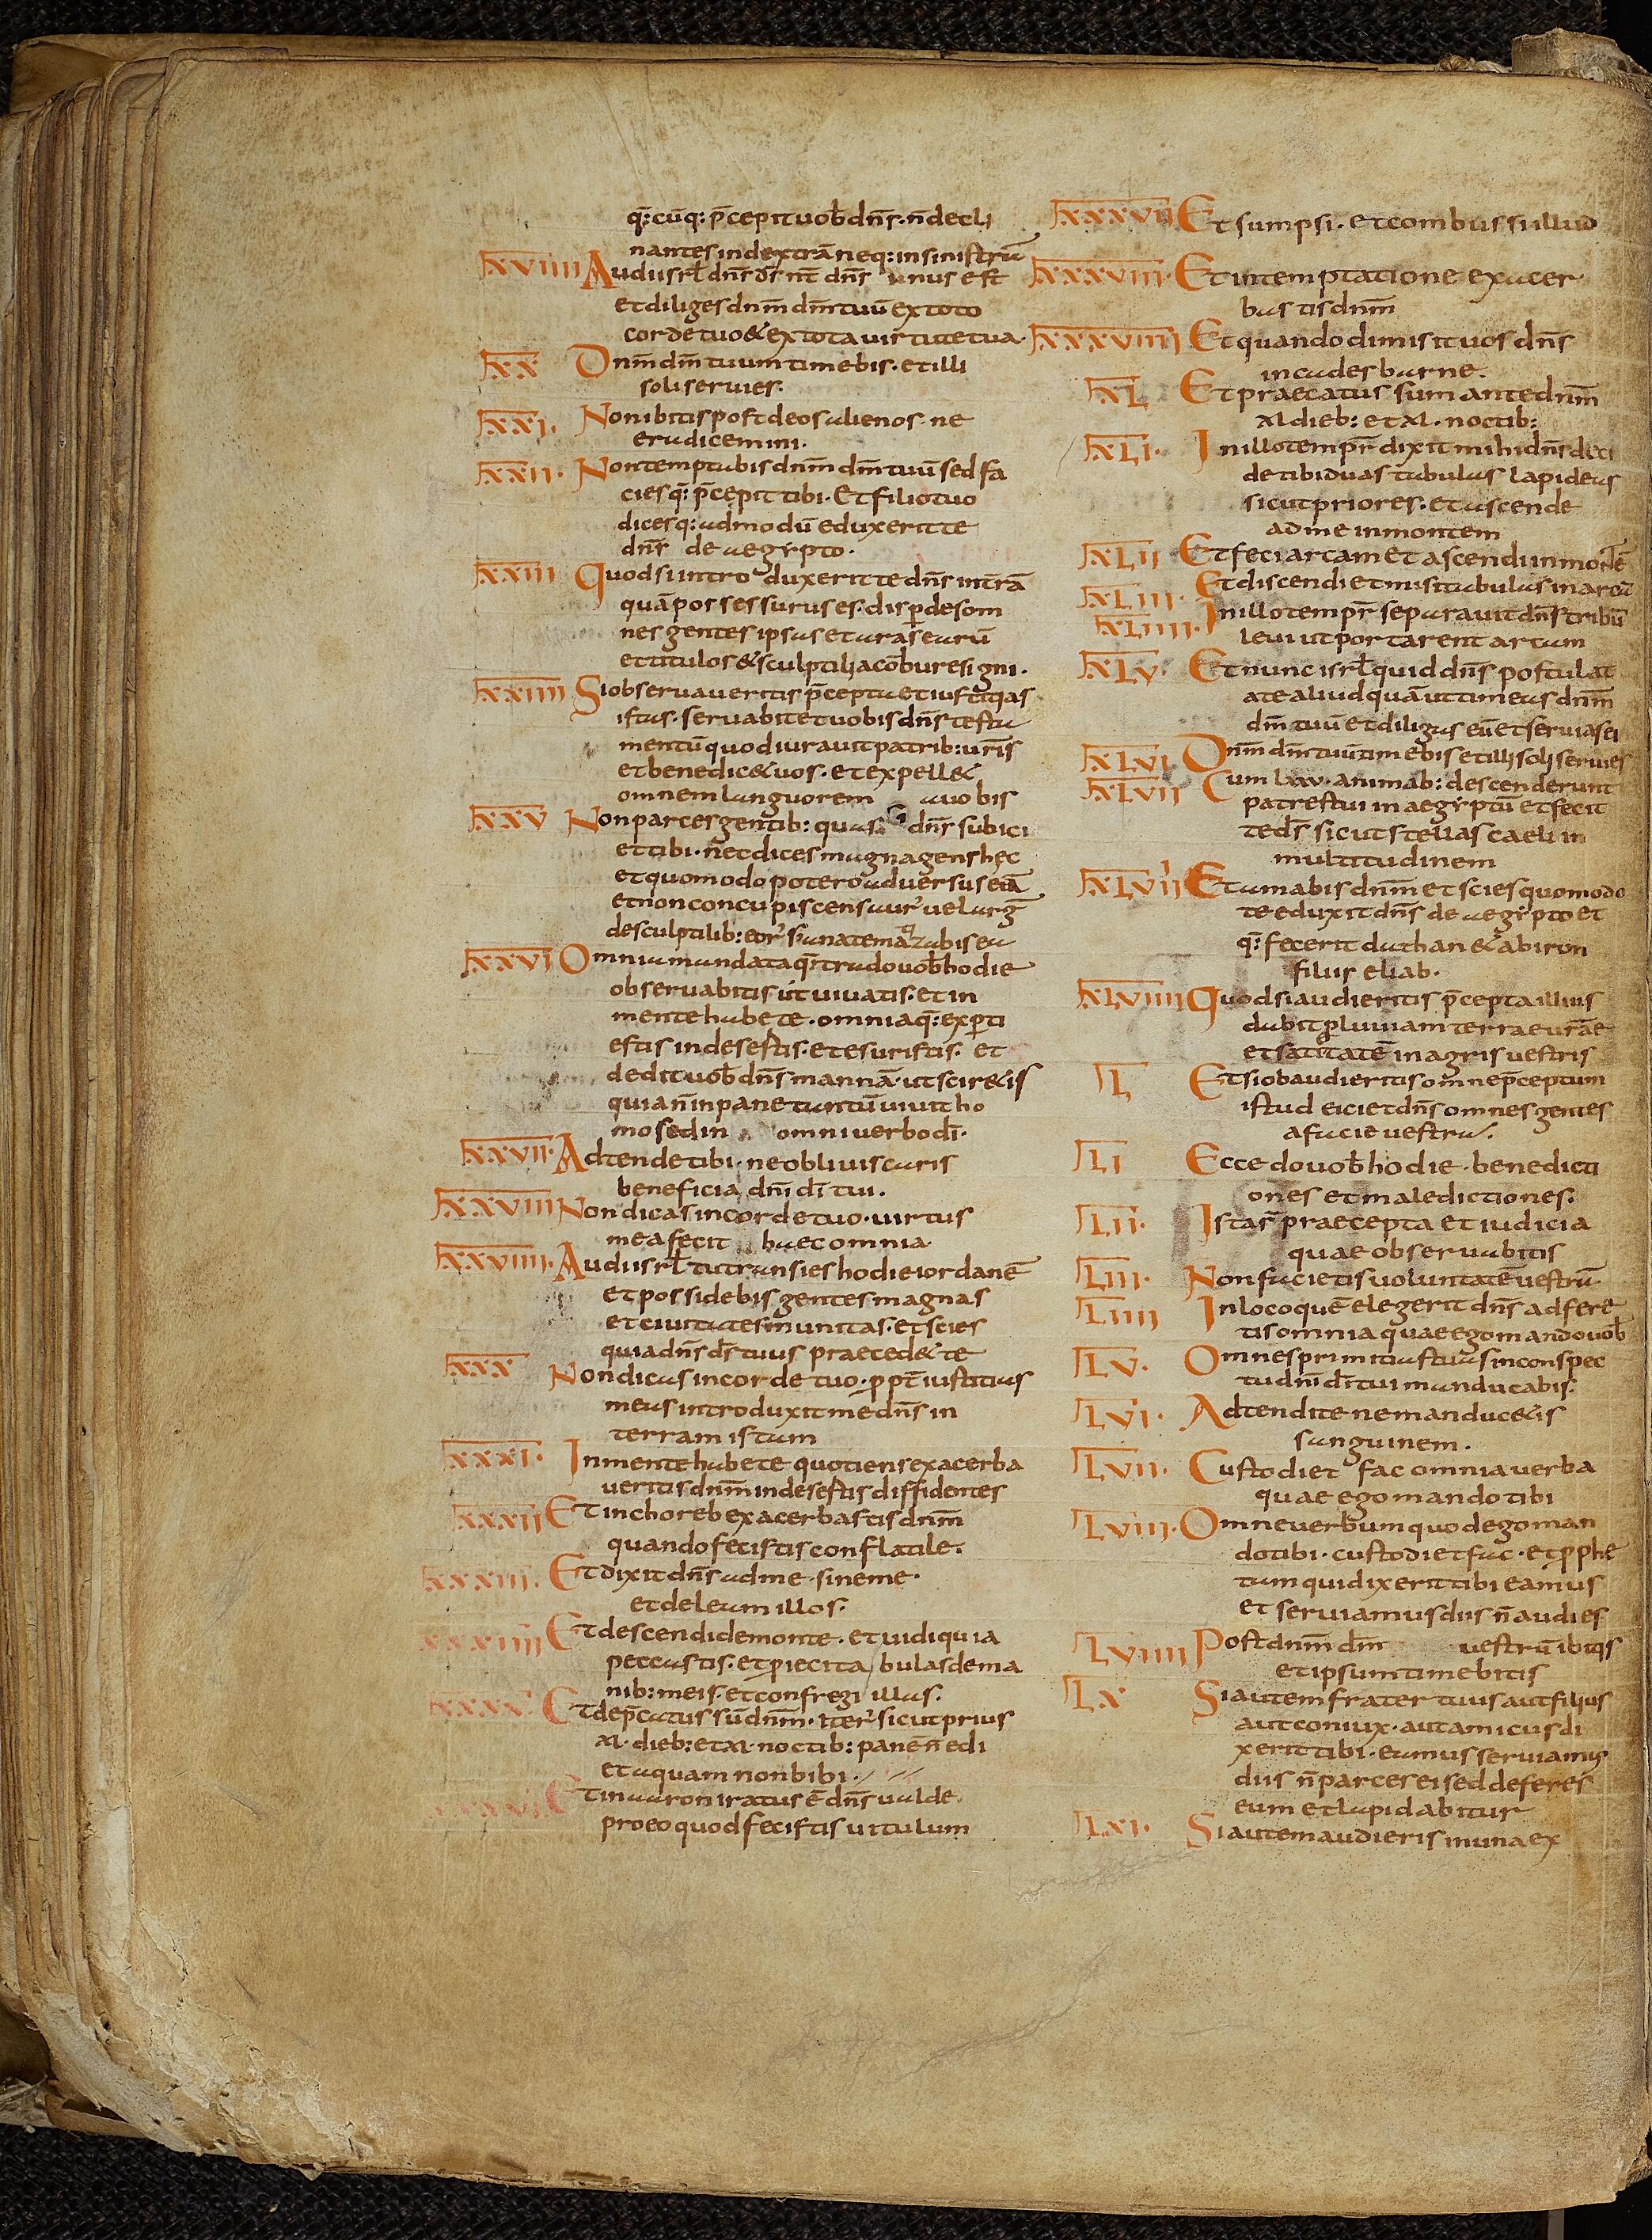 q:cūq: p̄cepit uob̄ dn̄s. n̄ decli
nantes in dextrā neq: in sinistrū
XVIIII Audi isrl̄ dn̄s d̄s nt̄ dn̄s unus est
et diliges dnm̄ dm̄ tuū ex toto
corde tuo & ex tota uirtute tua.
XX Dnm̄ dm̄ tuum timebis. et illi
soli seruies.
XXI. Non ibitis post deos alienos. ne
eradicemini.
XXII. Non temptabis dnm̄ dm̄ tuū sed fa
cies q: p̄cepit tibi. Et filio tuo
dices q:admodū eduxerit te
dn̄s de aegypto.
XXIII Quod si introduxerit te dn̄s in trā
quā possessurus es. disp̄des om
nes gentes ipsas et aras earū
et titulos & sculptilia conbures igni.
XXIIII Si obseruaueritis p̄cepta et iustitias
istas. seruabit et uobis dn̄s testa
mentū quod iurauit patrib: ur̄is
et benedic& uos. et expell&
omnem languorem a uobis
XXV Non parces gentib: quas dn̄s subici
et tibi. nec dices magna gens hec
et quomodo potero aduersus eā
et non concupiscens aur' uel arḡ
de sculptilib: eor'
XXVI Omnia mandata q: trado uob̄ hodie
obseruabitis ut uiuatis. et in
mente habete. omnia q: exp̄ti
estis in desertis. et esuristis. et
dedit uob̄ dn̄s mannā. ut scir&is
quia n̄ in pane tantū uiuit ho
mo sed in omni uerbo dī.
XXVII. Adtende tibi. ne obliuiscaris
beneficia dn̄i dī tui.
XXVIII Non dicas in corde tuo. uirtus
mea fecit haec omnia.
XXVIIII. Audi isrl̄ tu transies hodie iordanē
et possidebis gentes magnas
et ciuitates munitas. et scies
quia dn̄s d̄s tuus praeced& te
XXX Non dicas in corde tuo. ppt̄ iustitias
meas introduxit me dn̄s in
terram istam
XXXI. In mente habete quotiens exacerba
ueritis dnm̄ in desertis diffidentes
XXXII Et in choreb exacerbastis dnm̄
quando fecistis conflatile.
XXXIII. Et dixit dn̄s ad me. sine me.
et deleam illos.
XXXIIII Et descendi de monte. et uidi quia
peccastis. et p̄ieci tabulas de ma
nib: meis. et confregi illas.
XXXV Et dep̄catus sū dnm̄. iter' sicut prius
XL. dieb: et XL. noctib: panē n̄ edi
et aquam non bibi.
XXXVI Et in aaron iratus ē dn̄s ualde.
pro eo quod fecistis uitulum
XXXVII Et sumpsi. et combussi illud
XXXVIII. Et in temptatione exacer
bastis dnm̄
XXXVIIII Et quando dimisit uos dn̄s
in cades barne.
XL Et praecatus sum ante dnm̄
XL dieb: et XL. noctib:
XLI. In illo tempr̄ dixit mihi dn̄s deci
de tibi duas tabulas lapideas
sicut priores. et ascende
ad me in montem
XLII Et feci arcam et ascendi in montē
XLIII. Et discendi et misi tabulas in arcā
XLIIII. In illo tempr̄ separauit dn̄s tribū
leui ut portarent arcam
XLV. Et nunc isrl̄ quid dn̄s postulat
a te aliud quā ut timeas dnm̄
dm̄ tuū et diligas eū et seruias ei
XLVI Dnm̄ dm̄ tuū timebis et illi soli seruies
XLVII Cum LXXV. animab: descenderunt
patres tui in aegyptū et fecit
te d̄s sicut stellas caeli in
multitudinem
XLVIII Et amabis dnm̄ et scies quomodo
te eduxit dn̄s de aegypto et
q: fecerit dathan & abiron
filiis eliab.
XLVIIII Quod si audieritis p̄cepta illius
dabit pluuiam terrae ur̄ae
et satitatē in agris uestris
L Et si obaudieritis omne p̄ceptum
istud eiciet dn̄s omnes gentes
a facie uestra.
LI Ecce do uob̄ hodie. benedicti
ones et maledictiones.
LII. Ista st̄ praecepta et iudicia
quae obseruabitis
LIII. Non facietis uoluntatē uestrā
LIIII In loco quē elegerit dn̄s adfere
tis omnia quae ego mando uob̄
LV. Omnes primitias tuas in conspec
tu dn̄i dī tui manducabis.
LVI. Adtendite ne manduc&is
sanguinem.
LVII. Custodi et fac omnia uerba
quae ego mando tibi
LVIII. Omne uerbum quod ego man
do tibi. custodi et fac. et pphe
tam qui dixerit tibi eamus
et seruiamus diis n̄ audies
LVIIII Post dnm̄ dm̄ uestrū ibitis
et ipsum timebitis
LX Si autem frater tuus aut filius
aut coniux. aut amicus di
xerit tibi. eamus seruiamus
diis n̄ parces ei sed deferes
eum et lapidabitur
LXI. Si autem audieris in una ex